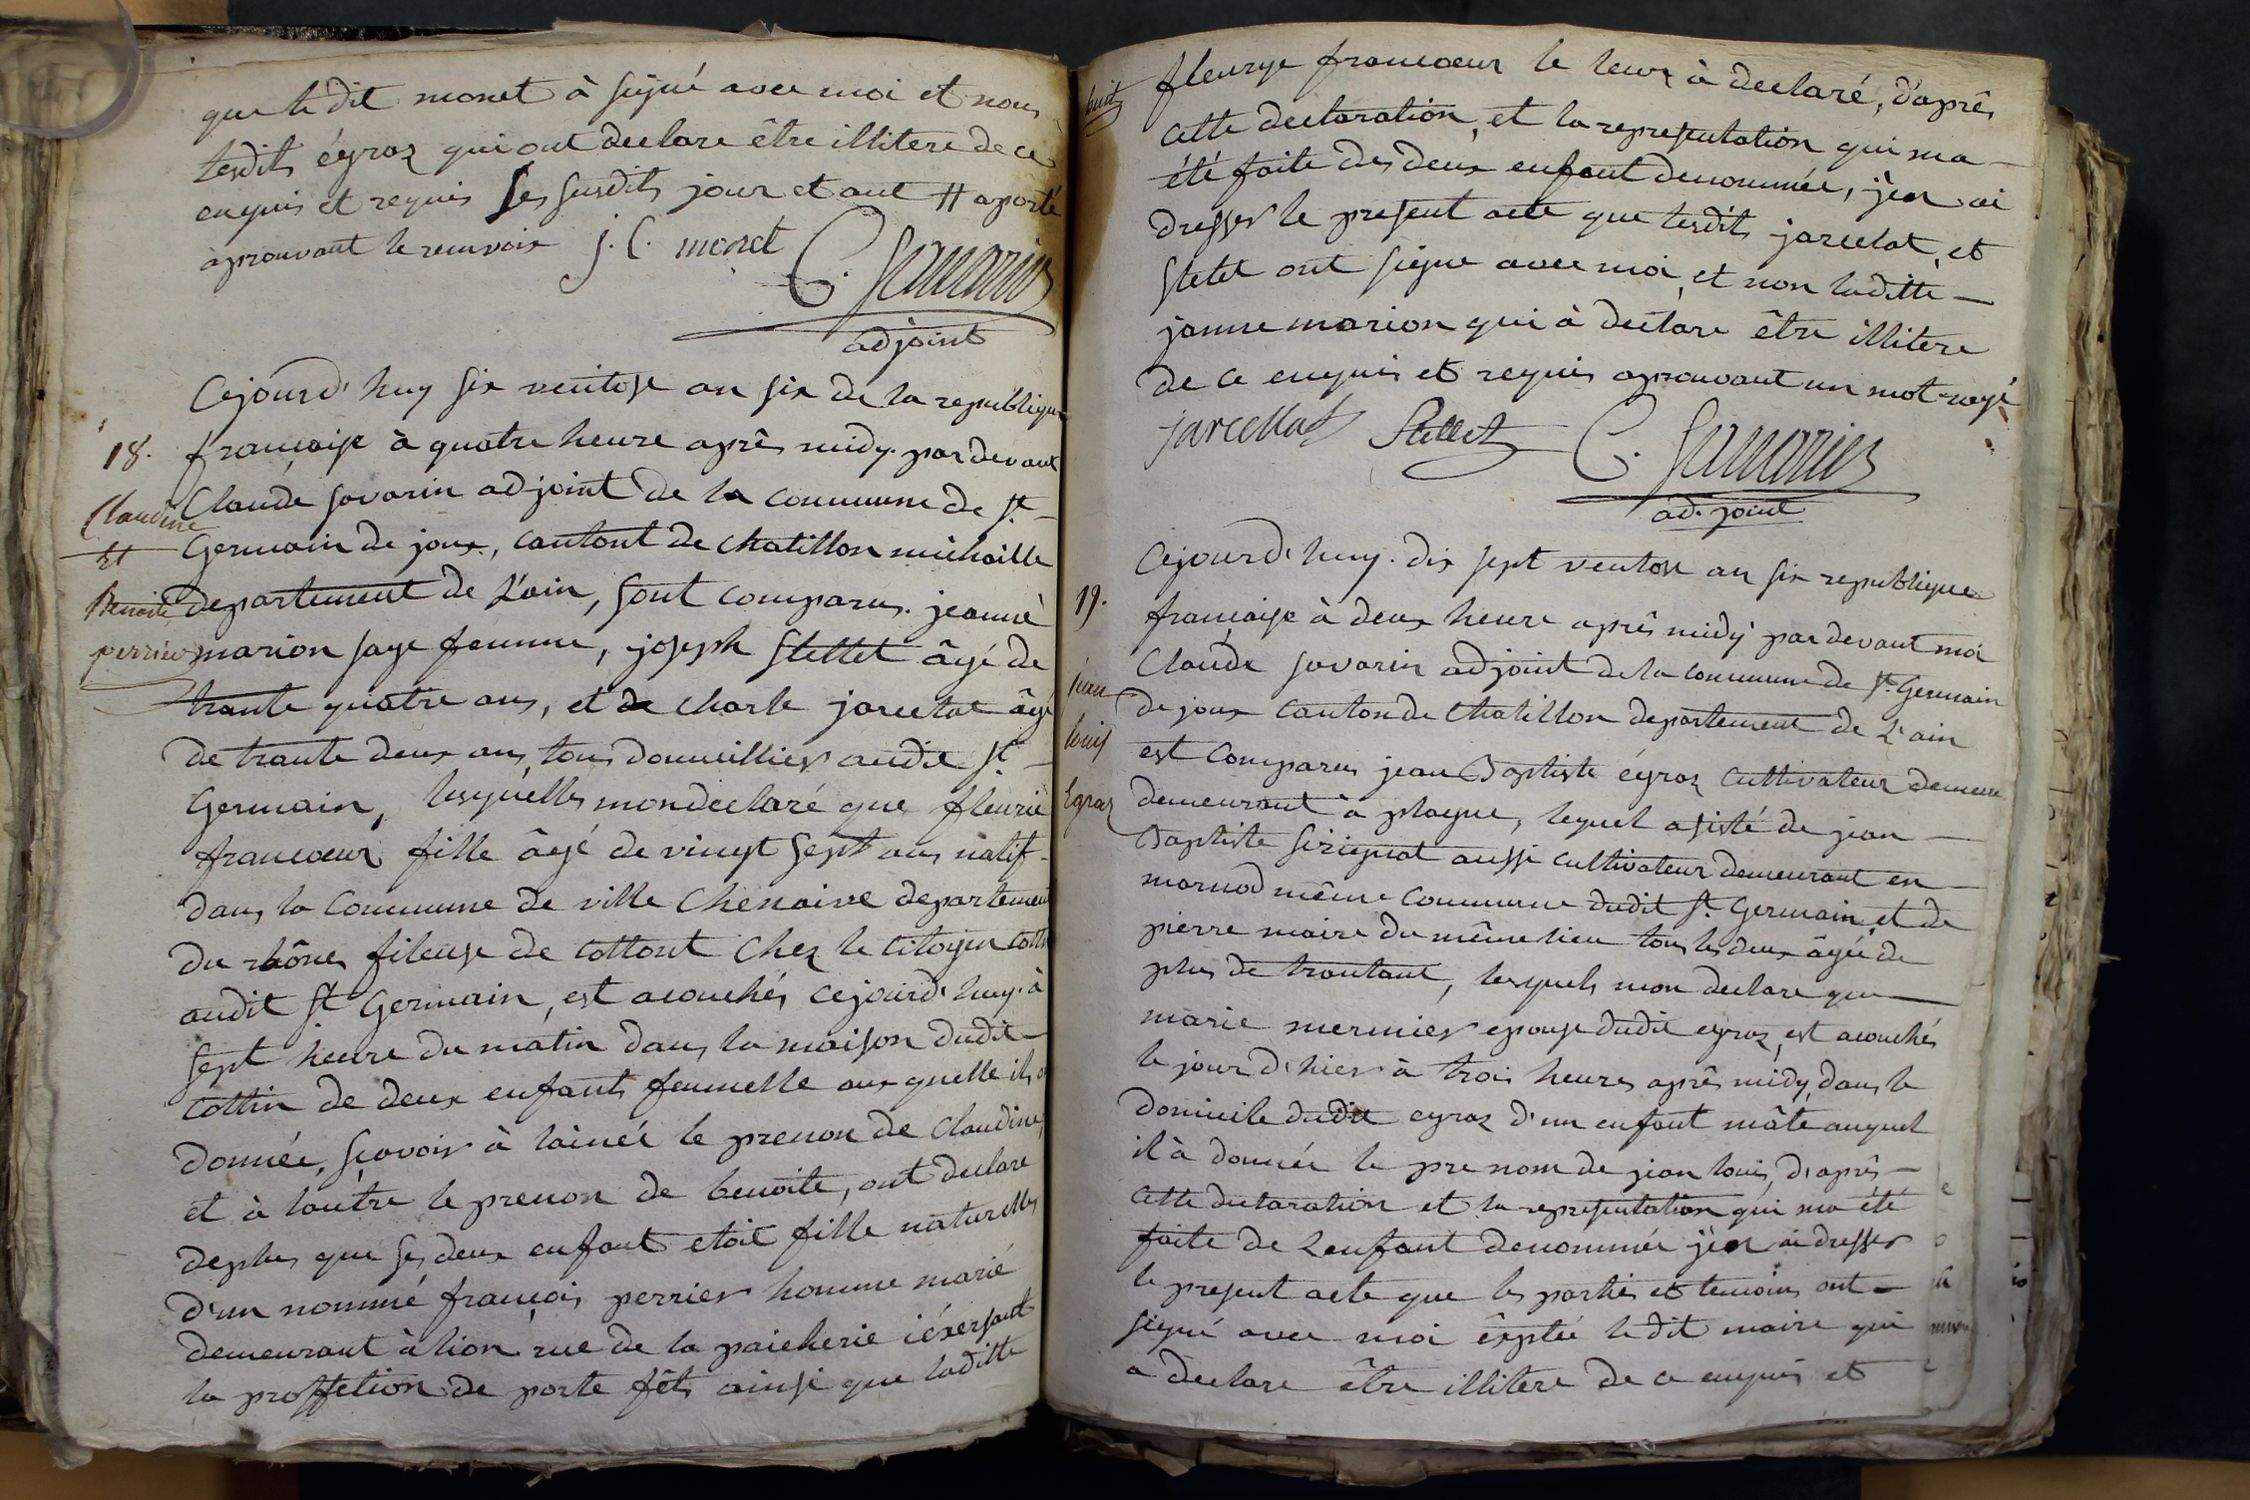 que le dit monet à signé avec moi et nous
lesdits égraz qui ont declare être illitere de ce
enquis et requis les susdits jour et ant # aporté
aprouvant le renvoix J. C. monet
C. Savarin
adjoint
Cejourd'huy six ventose an six de la republique
18.
française à quatre heure aprês midy. par devant
Claude savarin adjoint de la commune de St
Claudine
Germain de joux, cantont de chatillon michaille
Et
Benoite
departement de L'ain, sont comparus. jeanne
perrier
marion sage femme, joseph Stellet âgé de
trante quatre ans, et de Charle jarcelat âgé
de trante deux ans, tous domicillier audit St
Germain, lesquelles mondeclaré que fleurie
francoeur fille âgé de vingt sept ans natif
dans la Commune de ville Chenaive departement
du rhône, fileuse de cottont Chez le citoyen cottin
audit St Germain, est acouchés cejourd'huy. à
sept heure du matin dans la maison dudit
Cottin de deux enfants femmelle aux quelle ils
donnée, sçavoir à lainée le prenon de Claudine,
et à lautre le prenon de benoite, ont declare
deplus que ses deux enfant etoit fille naturelles
d'un nommé françois perrier homme marié
demeurant à lion rue de la paicherie iéxersant
la proffetion de porte fêts ainsi que laditte
huit
fleurye francoeur le leurs à declaré, d'aprês
cette declaration, et la representation qui ma
été faite des deux enfant denommée, j'en ai
dresser le present acte que lesdits jarcelat, et
Stelet ont signe avec moi, et non laditte
janne marion qui à declare être illitere
de ce enquis et requis aprouvant un mot rayé
jarcellat Stellet C. Savarin
ad. joint
Cejourd'huy. dix sept ventose an six republique
19.
française à deux heure aprês midy par devant moi
Claude savarin adjoint de la commune de St Germain
jean
de joux canton de Chatillon departement de L'ain
louis
est comparus jean Baptiste égraz cultivateur demeure
Egraz
demeurant à plagne, lequel asisté de jean
Baptiste sirignat aussi cultivateur demeurant en
marnod même commune dudit St Germain, et de
pierre maire du même lieu tous les deux âgée de
plus de trantant, lesquels mon declare que
marie mermier epouse dudit egraz, est acouchés
le jour d'hier à trois heures aprês midy, dans le
domicile dudit egraz d'un enfant mâle auquel
il à donnée le pre nom de jean louis, d'aprês
cette declaration et la representation qui ma été
faite de L'enfant denommée j'en ai dresser
le present acte que les partie et temoins ont
signé avec moi êxptée le dit maire qui
a declare être illitere de ce enquis et